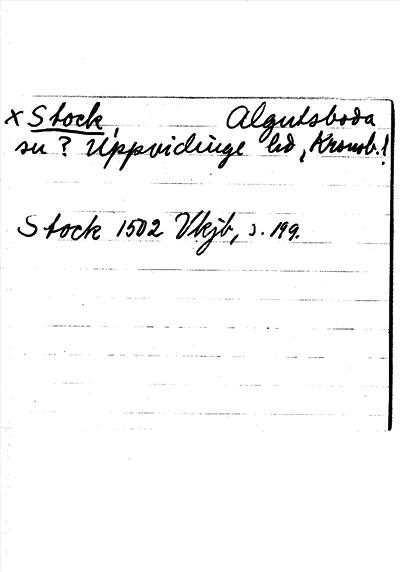 x Stock, Algutsboda
sn? Uppvidinge hd, Kronob. l
Stock 1502 Vkjb, s. 199.